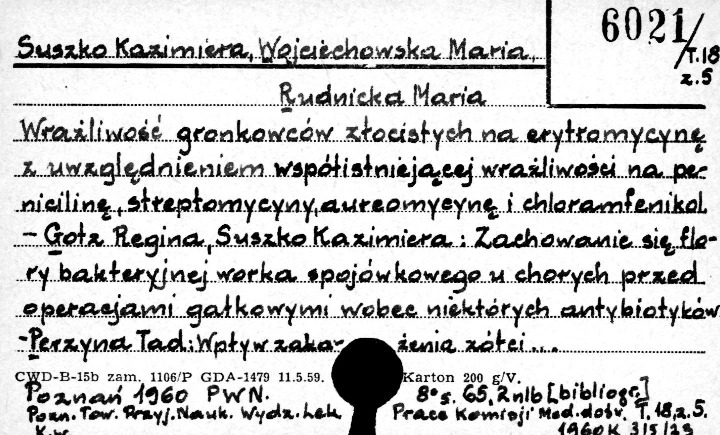 6021/
T.18
z.5
Suszko Kazimiera, Wojciechowska Maria,
Rudnicka Maria
Wrażliwość gronkowców złocistych na erytromycynę
z uwzględnieniem współistniejącej wrażliwości na pe-
nicilinę, streptomycyny, aureomycynę i chloramfenikol
- Gotz Regina, Suszko Kazimiera: Zachowanie się flo-
ry bakteryjnej worka spojówkowego u chorych przed
operacjami gałkowymi wobec niektórych antybiotyków
- Perzyna Tad: Wpływ zaka żenia żółci...
CWD-B-15b zam. 1106/P GDA-1479 11.5.59. Karton 200 g/V.
Poznań 1960 PWN. 8° s. 65, 2nlb [bibliogr.]
Pozn. Tow. Przyj. Nauk. Wydz. Lek. Prace Komisji Med. dośw. T. 18, z. 5.
K.W. 1960 K 315/23